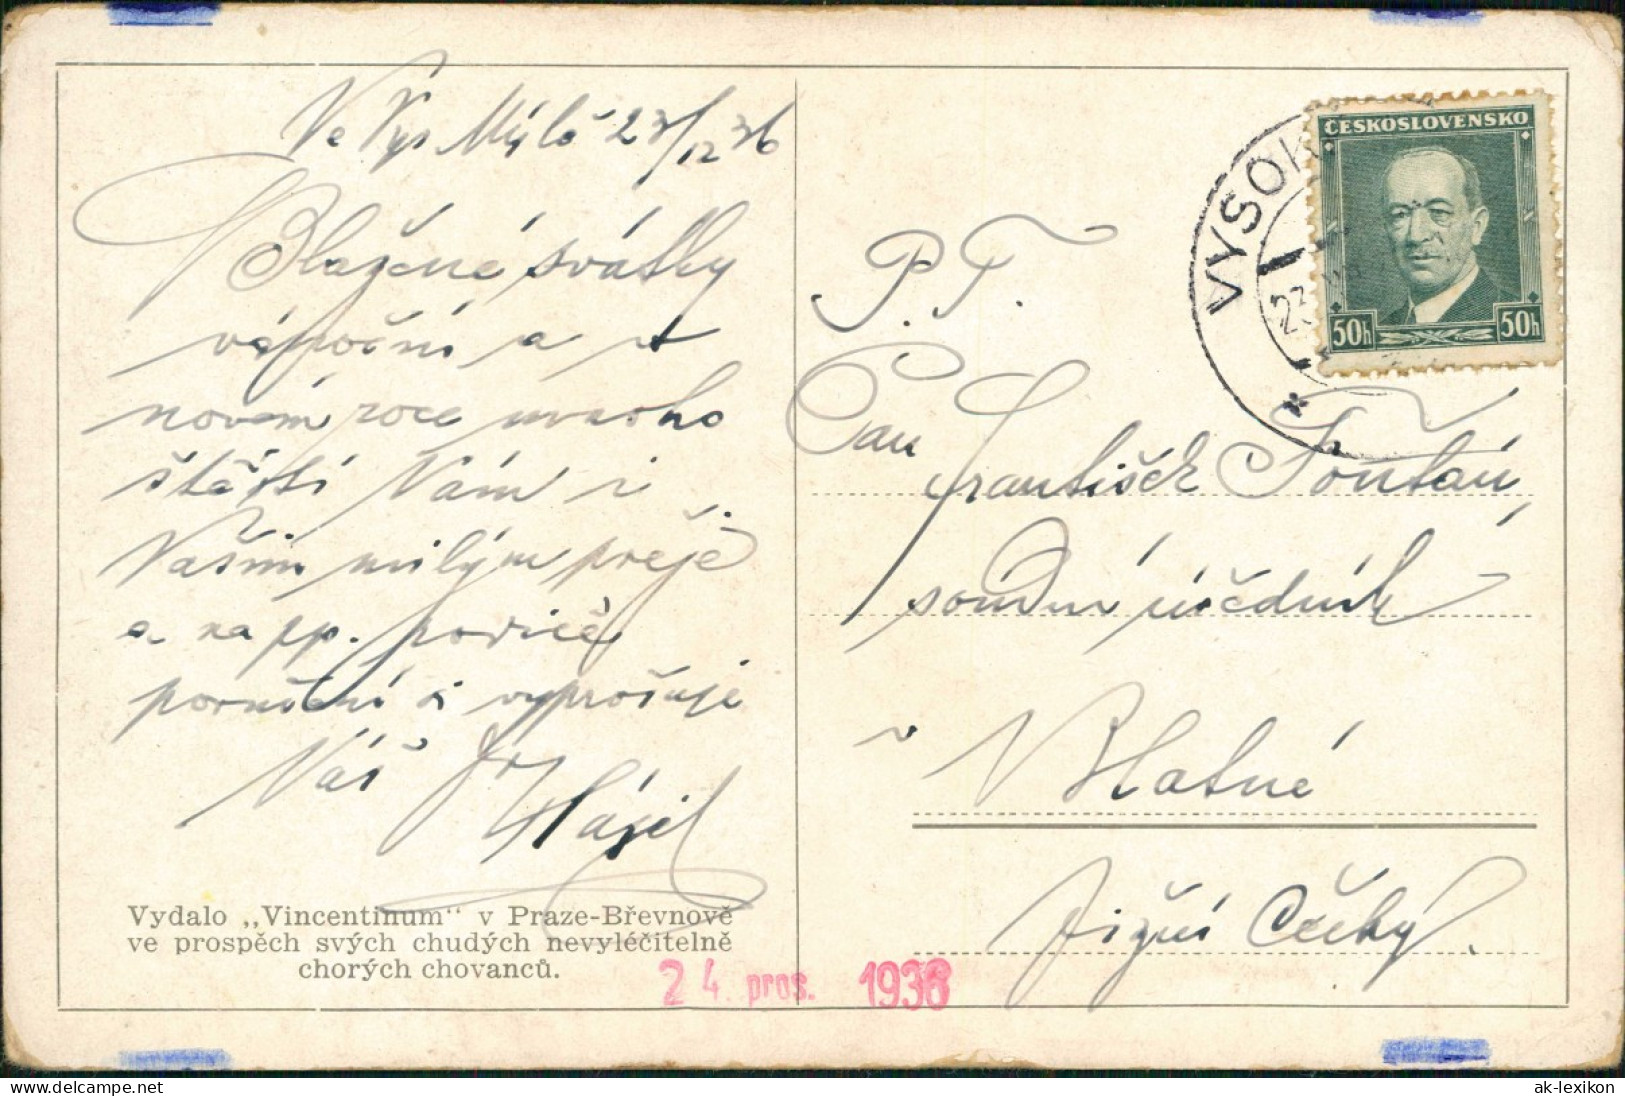 Ve Vys Mýtě 23/12 36
Blažené svátky
vánoční a v
novém roce mnoho
štěstí Vám i
Vašim milým přeje
a na pp. rodiče
poručení si vyprošuje
Váš
Vydalo „Vincentinum“ v Praze-Břevnově
ve prospěch svých chudých nevyléčitelně
chorých chovanců.
24. pros. 1936
VYSOK
23
ČESKOSLOVENSKO
50h 50h
P. T.
Pan
František
soudní úředník
v Blatné
Jižní Čechy.
ak-lexikon